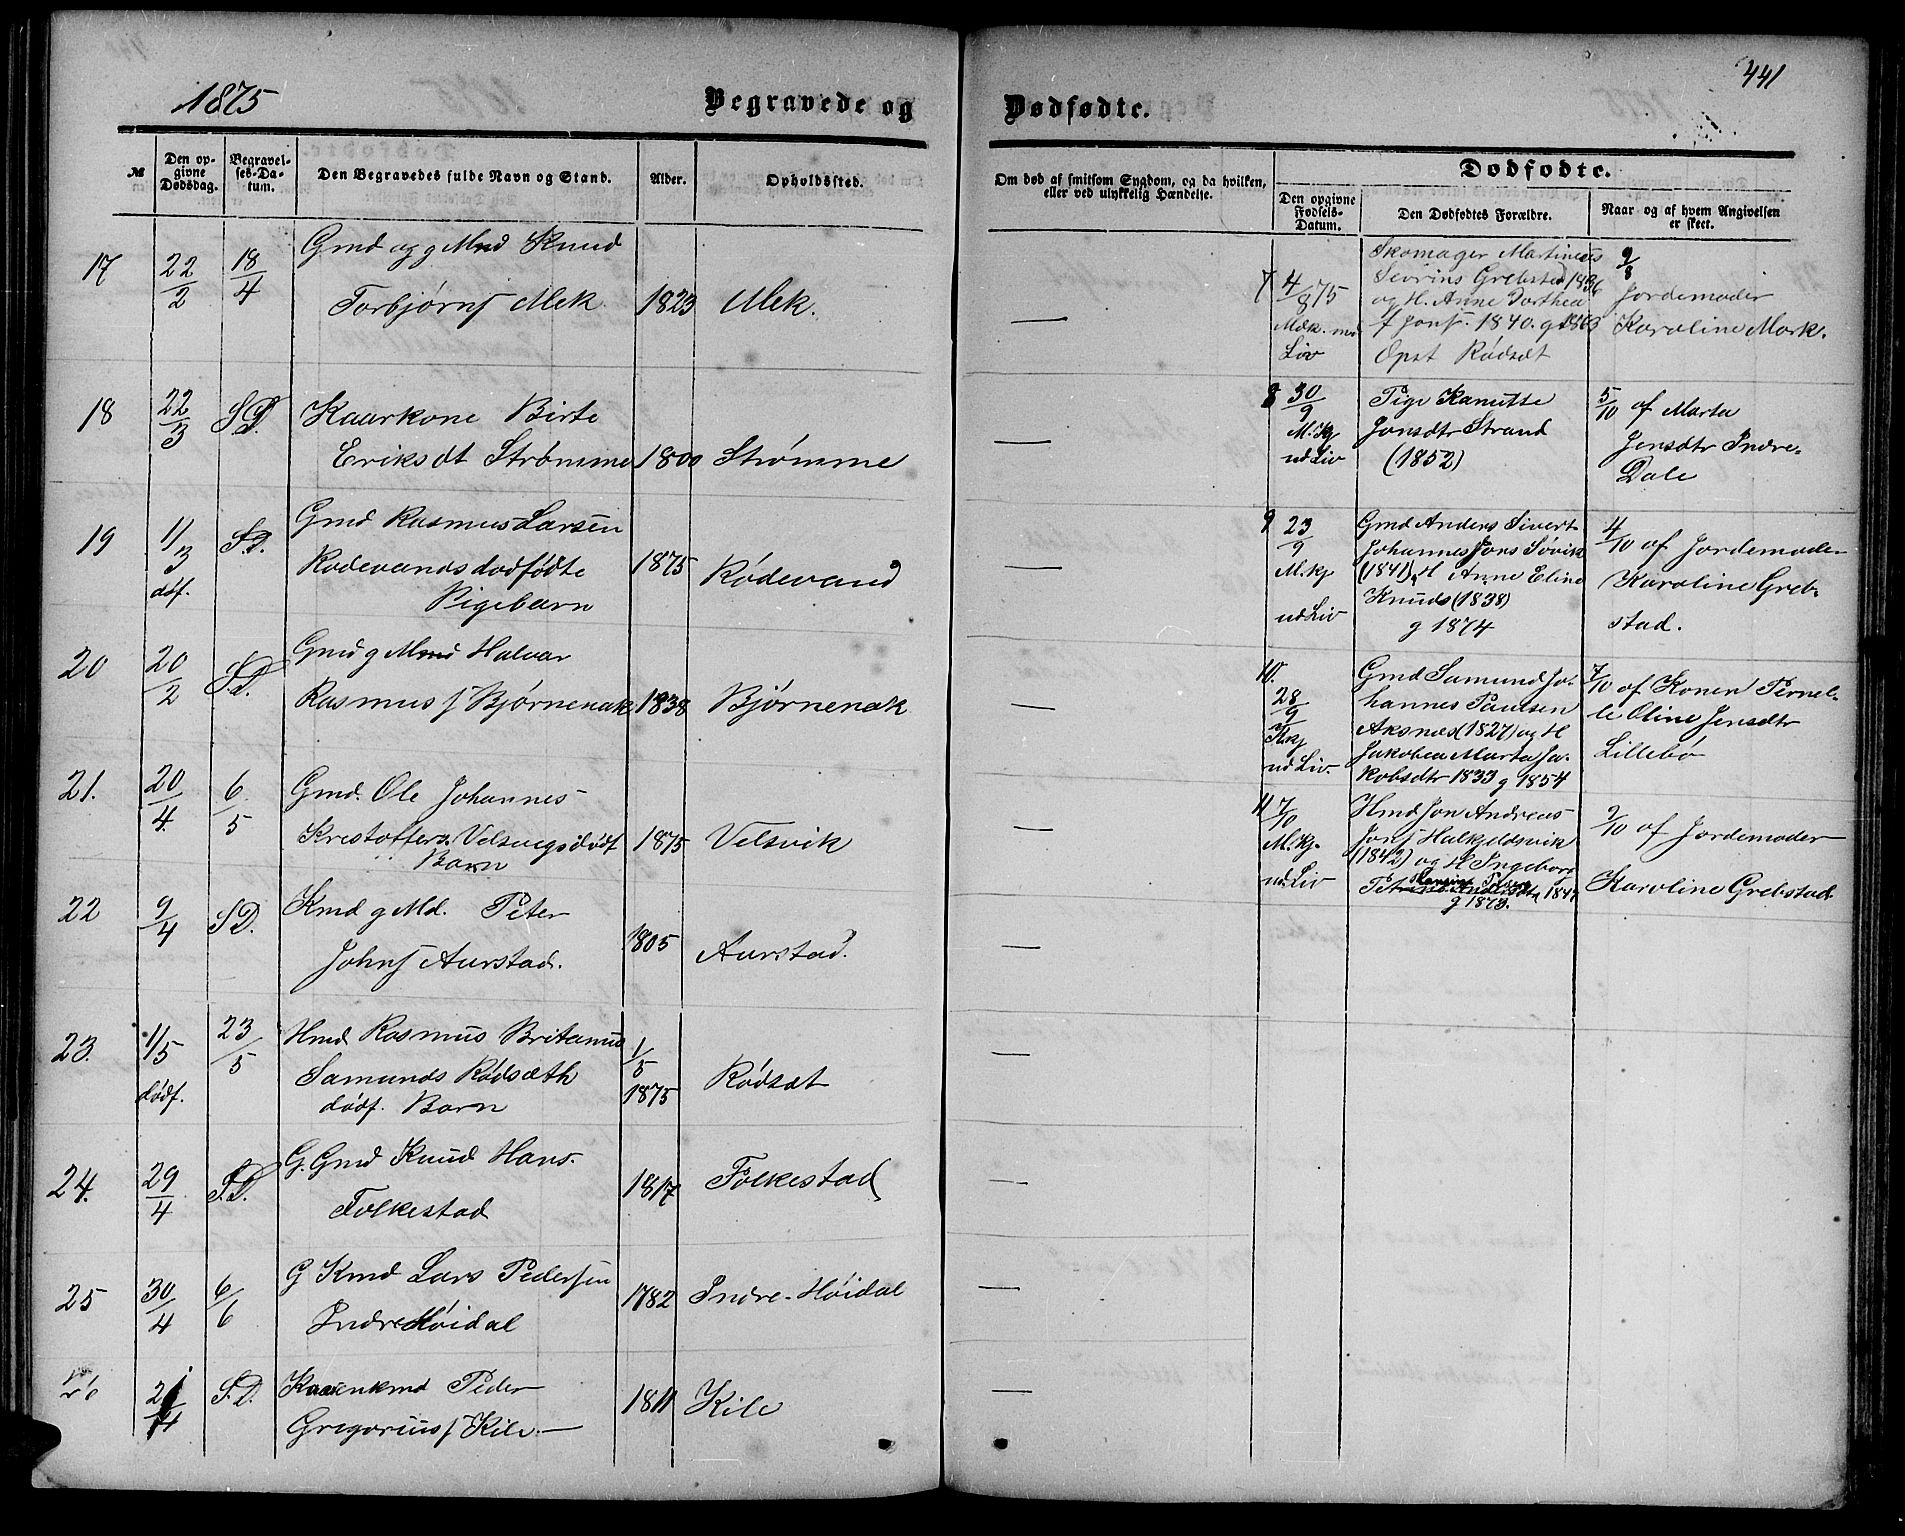 1875
Begravede og
Dødfødte.
441
№
Den opgivne Dødsdag.
Begravelses-Datum.
Den Begravedes fulde Navn og Stand.
Alder.
Opholdssted.
Om død af smitsom Sygdom, og da hvilken, eller ved ulykkelig Hændelse.
Dødfødte.
Den opgivne Fødsels-Datum.
Den Dødfødtes Forældre.
Naar og af hvem Angivelsen er skeet.
17 22/2 18/4 Gmd og g Mnd Knud
Torbjørnf Mek 1823 Mek. —
18 22/3 S.D. Kaarkone Birte
Eriksdt Strømme 1800 Strømme —
19 1/3 S.D. Gmd Rasmus Larsen
døf. Rødevands dødfødte 1875 Rødevand —
Pigebarn
20 20/2 S.D. Gmd g Mnd Halvar
Rasmusf Bjørnenak 1838 Bjørnenak —
21. 20/4 6/5 Gmd. Ole Johannes
Kristoffers. Velsvigs dødf 1875 Velsvik —
Barn
22 9/4 S.D. Kmd g Md. Peter
Johnf Aurstad. 1805 Aurstad. —
23. 1/5 23/5 Hmd Rasmus Britanus 1/5
dødf. Samunds Rødsæth 1875 Rødsæt —
dødf. Barn
24. 29/4 S.D. G. Gmd Knud Hans-
Folkestad 1817 Folkestad —
25 30/4 6/6 G Kmd Lars Pedersen
Indre Høidal 1782 Indre-Høidal —
26 S.D. Peder
Gregoriusf Kile — 1811 Kile —
7 4/8 75 Skomager Martinus 9/8
Sevrins Grebstad 1836 Jordemoder
og H. Anne Dorthea
Mdk. md Jonf. 1840. g 1863 Karoline Mork.
Liv Opst Rødsæt
8 30/9 Pige Kanutte 5/10 af Marta
M.kj Jonsdtr Strand Jensdtr Indre-
ud Liv (1852) Dale
9 23/9 Gmd Anders Sivert 4/10 af Jordemoder
Johannes Jons Søvik
M.kj (1841) & H Anne Eline Karoline Greb-
ud Liv Knuds (1838) stad.
g 1874
10. Gmd Samund Jo- 7/10 af Konen Pernel-
28/9 hannes Paulsen le Oline Jensdtr
kj Aksnæs (1827) og H Lillebø
ud Liv. Jakobea Marta Ja-
kobsdtr 1833 g 1854
11 7/10 Hmd Jon Andreas 9/10 af Jordemoder
M.kj. Jonf Halkjeldsvik
(1842) og H Ingeborg
ud Liv 1847 Karoline Grebstad
g 1873.